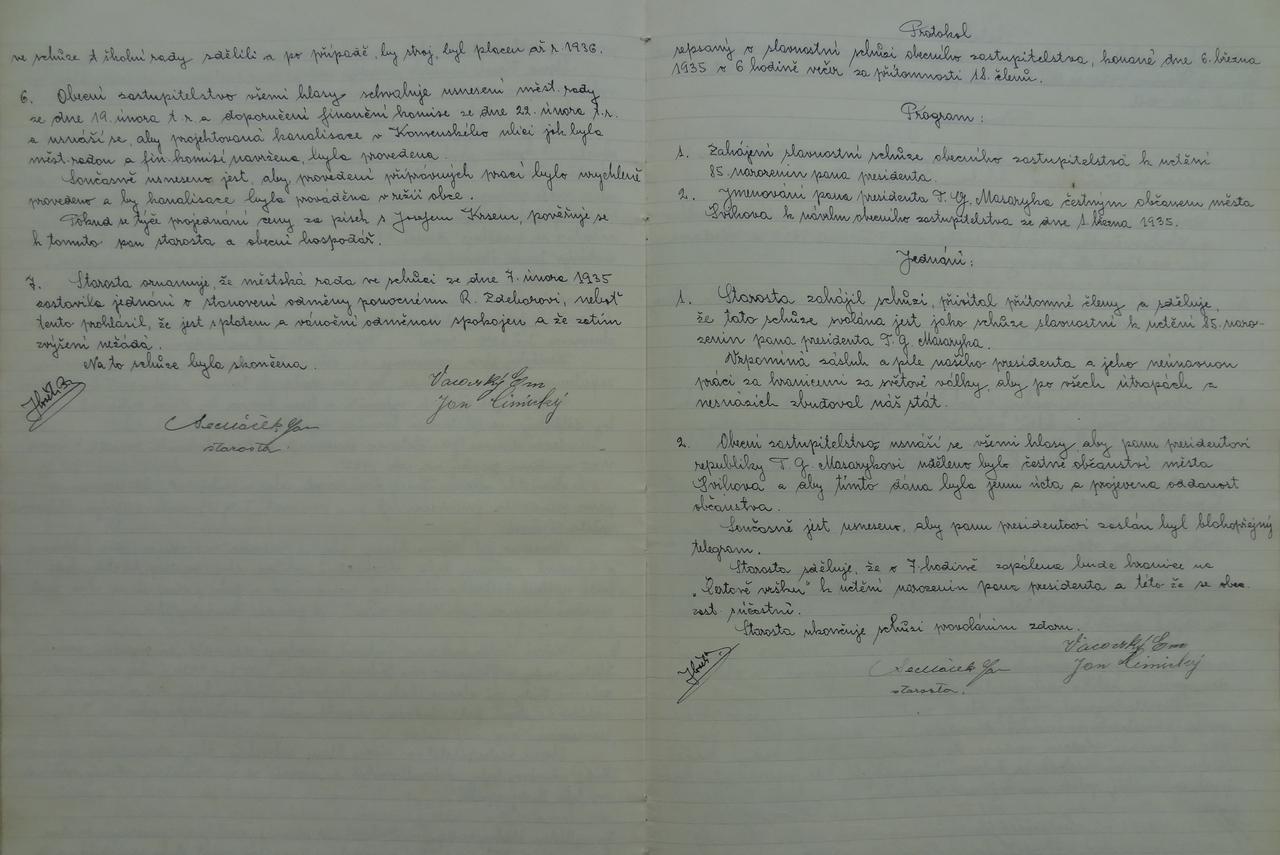 ve schůze t. školní rady sdělili a po případě, by stroj, byl placen až r. 1936.
6. Obecní zastupitelstvo všemi hlasy schvaluje usnesení měst. rady
ze dne 19. února t. r. a doporučení finanční komise ze dne 22. února t. r.
a usnáší se, aby projektovaná kanalisace v Komenského ulici jak byla
měst. radou a fin. komisí navržena, byla provedena.
Současně usneseno jest, aby provedení přípravných prací bylo urychleně
provedeno a by kanalisace byla prováděna v režii obce.
Pokud se týče projednání ceny za písek s Josefem Krsem, pověřuje se
k tomuto pan starosta a obecní hospodář.
7. Starosta oznamuje, že městská rada ve schůzi ze dne 7. února 1935
zastavila jednání o stanovení odměny ponocnému R. Zdeborovi, neboť
tento prohlásil, že jest s platem a vánoční odměnou spokojen a že zatím
zvýšení nežádá.
Na to schůze byla skončena.
Vacovský Em
Jan
Sedláček Jan
starosta.
Protokol
sepsaný o slavnostní schůzi obecního zastupitelstva, konané dne 6. března
1935 o 6 hodině večer za přítomnosti 18. členů.
Program:
1. Zahájení slavnostní schůze obecního zastupitelstva k uctění
85. narozenin pana presidenta.
2. Jmenování pana presidenta T. G. Masaryka čestným občanem města
Švihova k návrhu obecního zastupitelstva ze dne 1. března 1935.
Jednání:
1. Starosta zahájil schůzi, přivítal přítomné členy a sděluje,
že tato schůze svolána jest jako schůze slavnostní k uctění 85. naro-
zenin pana presidenta T. G. Masaryka.
Vzpomíná zásluh a píle našeho presidenta a jeho neúnavnou
práci za hranicemi za světové války, aby po všech útrapách a
nesnázích zbudoval náš stát.
2. Obecní zastupitelstvo usnáší se všemi hlasy aby panu presidentovi
republiky T. G. Masarykovi uděleno bylo čestné občanství města
Švihova a aby tímto dána byla jemu úcta a projevena oddanost
občanstva.
Současně jest usneseno, aby panu presidentovi zaslán byl blahopřejný
telegram.
Starosta sděluje, že o 7 hodině zapálena bude hranice na
„Čertově vršku" k uctění narozenin pana presidenta a této že se obec.
zast. súčastní.
Starosta ukončuje schůzi provoláním zdaru.
Vacovský Em
Jan
Sedláček Jan
starosta.